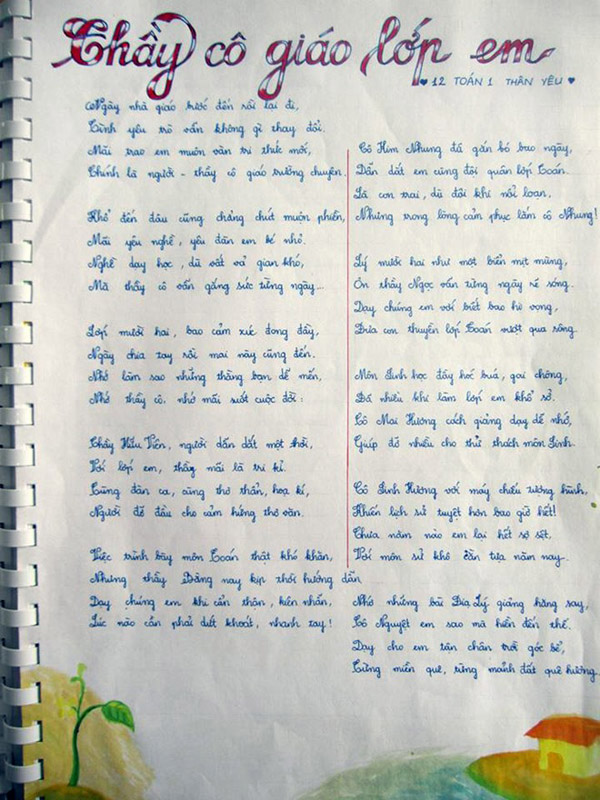 Thầy cô giáo lớp em
♥ 12 TOÁN 1 THÂN YÊU ♥
Ngày nhà giáo bước đến rồi lại đi,
Tình yêu trò vẫn không gì thay đổi.
Mãi trao em muôn vàn tri thức mới,
Chính là người - thầy cô giáo trường chuyên.
Khổ đến đâu cũng chẳng chút muộn phiền,
Mãi yêu nghề, yêu đàn em bé nhỏ.
Nghề dạy học, dù vất vả gian khó,
Mà thầy cô vẫn gắng sức từng ngày...
Lớp mười hai, bao cảm xúc dong đầy,
Ngày chia tay rồi mai này cũng đến.
Nhớ làm sao những thằng bạn dễ mến,
Nhớ thầy cô, nhớ mãi suốt cuộc đời:
Thầy Hữu Viên, người dẫn dắt một thời,
Với lớp em, thầy mãi là tri kỉ.
Cũng đàn ca, cũng thơ thẩn, hoạ kí,
Người để đâu cho cảm hứng thơ văn.
Việc trình bày môn Toán thật khó khăn,
Nhưng thầy Bằng nay kịp thời hướng dẫn
Dạy chúng em khi cẩn thận, kiên nhẫn,
Lúc nào cần phải dứt khoát, nhanh tay!
Cô Kim Nhung đã gắn bó bao ngày,
Dẫn dắt em cùng đội quân lớp Toán.
Là con trai, dù đôi khi nổi loạn,
Nhưng trong lòng cảm phục lắm cô Nhung!
Lý mười hai như một biển mịt mùng,
Ơn thầy Ngọc vẫn từng ngày rẽ sóng.
Dạy chúng em với biết bao hi vọng,
Đưa con thuyền lớp Toán vượt qua sông.
Môn Sinh học đầy hóc búa, gai chông,
Đã nhiều khi làm lớp em khổ sở.
Cô Mai Hương cách giảng dạy dễ nhớ,
Giúp đỡ nhiều cho thử thách môn Sinh.
Cô Linh Hương với máy chiếu tượng hình,
Khiến lịch sử tuyệt hơn bao giờ hết!
Chưa năm nào em lại hết sợ sệt,
Với môn sử khô cằn tựa năm nay.
Nhớ những bài Địa Lý giảng hăng say,
Cô Nguyệt em sao mà hiền đến thế.
Dạy cho em tận chân trời góc bể,
Từng miền quê, từng mảnh đất quê hương.